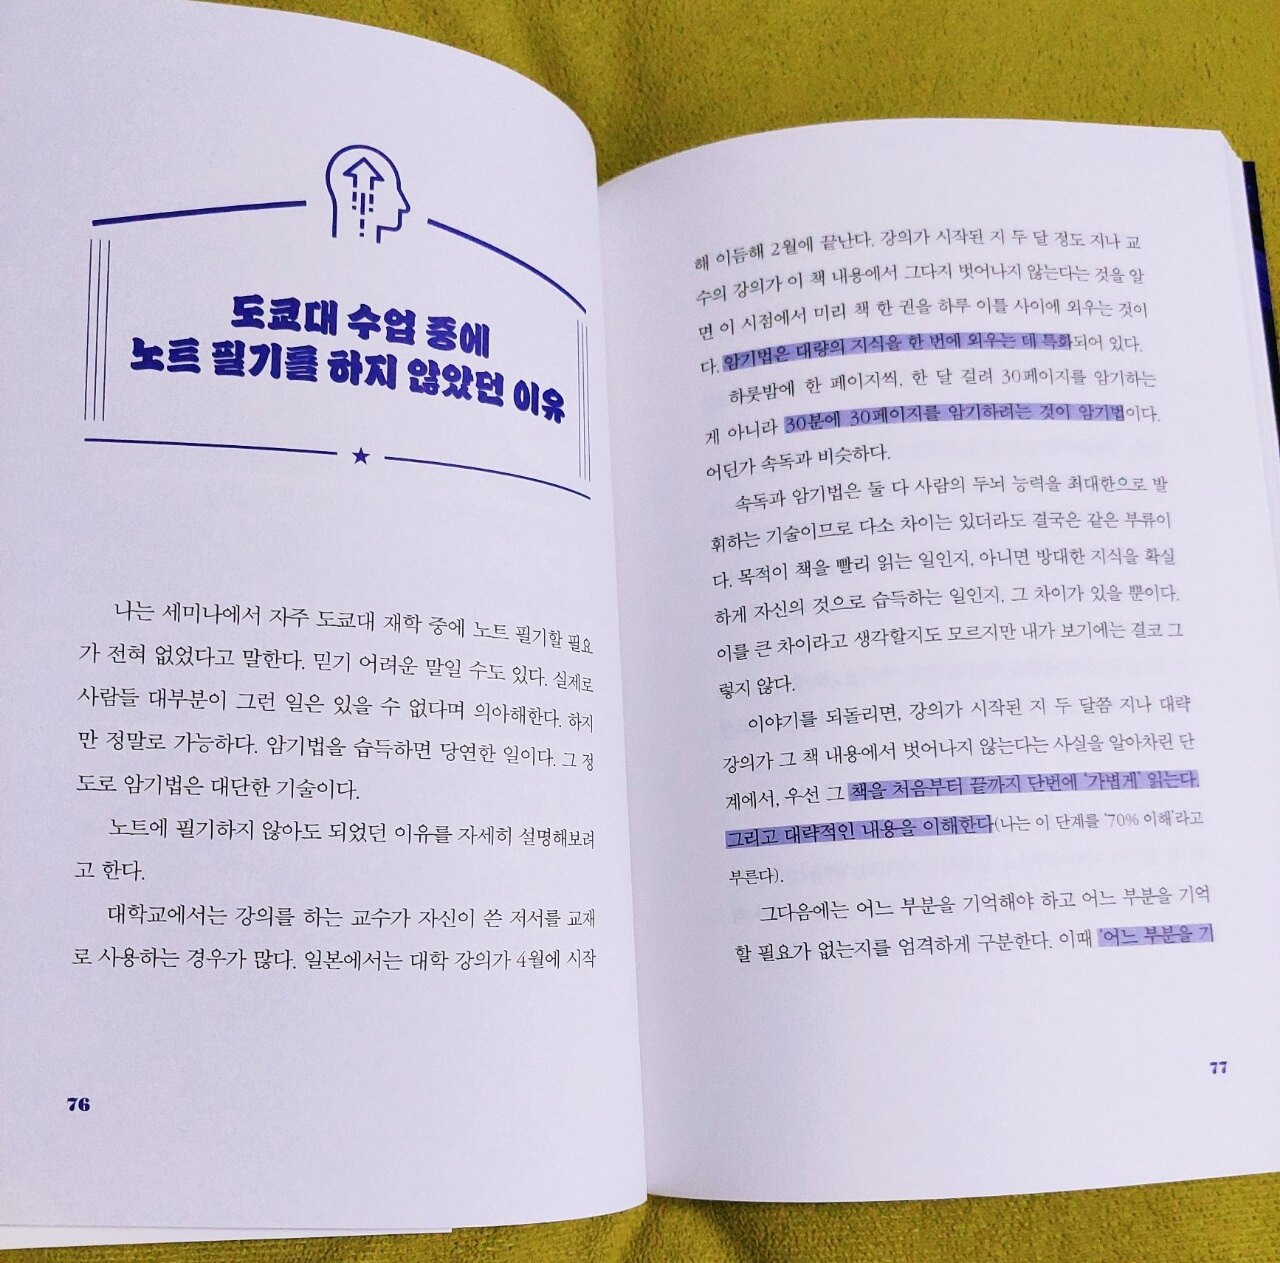 도쿄대 수업 중에
노트 필기를 하지 않았던 이유
나는 세미나에서 자주 도쿄대 재학 중에 노트 필기할 필요
가 전혀 없었다고 말한다. 믿기 어려운 말일 수도 있다. 실제로
사람들 대부분이 그런 일은 있을 수 없다며 의아해한다. 하지
만 정말로 가능하다. 암기법을 습득하면 당연한 일이다. 그 정
도로 암기법은 대단한 기술이다.
노트에 필기하지 않아도 되었던 이유를 자세히 설명해보려
고 한다.
대학교에서는 강의를 하는 교수가 자신이 쓴 저서를 교재
로 사용하는 경우가 많다. 일본에서는 대학 강의가 4월에 시작
76
해 이듬해 2월에 끝난다. 강의가 시작된 지 두 달 정도 지나 교
수의 강의가 이 책 내용에서 그다지 벗어나지 않는다는 것을 알
면 이 시점에서 미리 책 한 권을 하루 이틀 사이에 외우는 것이
다. 암기법은 대량의 지식을 한 번에 외우는 데 특화되어 있다.
하룻밤에 한 페이지씩, 한 달 걸려 30페이지를 암기하는
게 아니라 30분에 30페이지를 암기하려는 것이 암기법이다.
어딘가 속독과 비슷하다.
속독과 암기법은 둘 다 사람의 두뇌 능력을 최대한으로 발
휘하는 기술이므로 다소 차이는 있더라도 결국은 같은 부류이
다. 목적이 책을 빨리 읽는 일인지, 아니면 방대한 지식을 확실
하게 자신의 것으로 습득하는 일인지, 그 차이가 있을 뿐이다.
이를 큰 차이라고 생각할지도 모르지만 내가 보기에는 결코 그
렇지 않다.
이야기를 되돌리면, 강의가 시작된 지 두 달쯤 지나 대략
강의가 그 책 내용에서 벗어나지 않는다는 사실을 알아차린 단
계에서, 우선 그 책을 처음부터 끝까지 단번에 ‘가볍게’ 읽는다.
그리고 대략적인 내용을 이해한다(나는 이 단계를 ‘70% 이해’라고
부른다).
그다음에는 어느 부분을 기억해야 하고 어느 부분을 기억
할 필요가 없는지를 엄격하게 구분한다. 이때 ‘어느 부분을 기
77